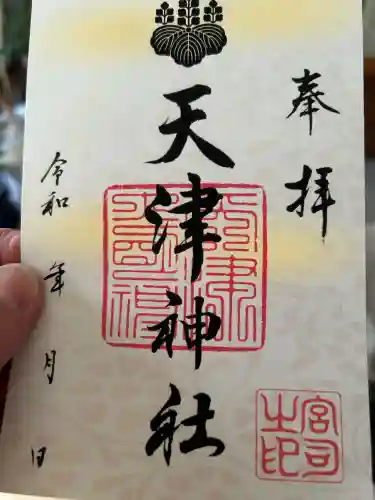 奉拝
天津神社
令和 年 月 日
宮司之印